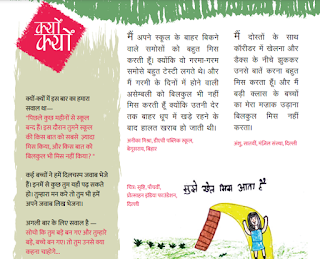 क्यों
क्यों
क्यों-क्यों में इस बार का हमारा
सवाल था—
"पिछले कुछ महीनों से स्कूल
बन्द हैं। इस दौरान तुमने स्कूल
की किस बात को सबसे ज़्यादा
मिस किया, और किस बात को
बिलकुल भी मिस नहीं किया? "
कई बच्चों ने हमें दिलचस्प जवाब भेजे
हैं। इनमें से कुछ तुम यहाँ पढ़ सकते
हो। तुम्हारा मन करे तो तुम भी हमें
अपने जवाब लिख भेजना।
अगली बार के लिए सवाल है —
सोचो कि तुम बड़े बन गए और तुम्हारे
बड़े, बच्चे बन गए। तो तुम उनसे क्या
कहना चाहोगे...
मैं अपने स्कूल के बाहर बिकने
वाले समोसों को बहुत मिस
करती हूँ। क्योंकि वो गरमा-गरम
समोसे बहुत टेस्टी लगते थे। और
मैं गरमी के दिनों में होने वाली
असेम्बली को बिलकुल भी नहीं
मिस करती हूँ क्योंकि उतनी देर
तक बाहर धूप में खड़े रहने के
बाद हालत खराब हो जाती थी।
मैं दोस्तों के साथ
कॉरीडर में खेलना और
डैक्स के नीचे झुककर
उनसे बातें करना बहुत
मिस करता हूँ। और मैं
बड़ी क्लास के बच्चों
का मेरा मज़ाक उड़ाना
बिलकुल मिस नहीं
करता।
दिल्ली
मुझे खेल मिस आता है